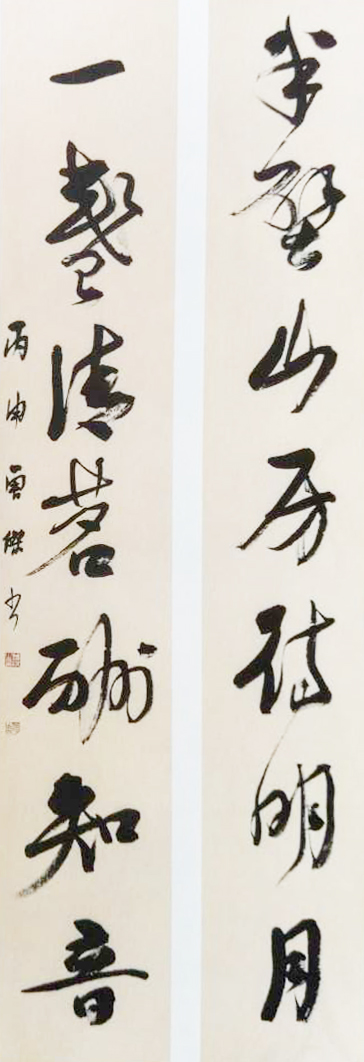 半壁山房待明月
一盞清茗酬知音
丙申傑书